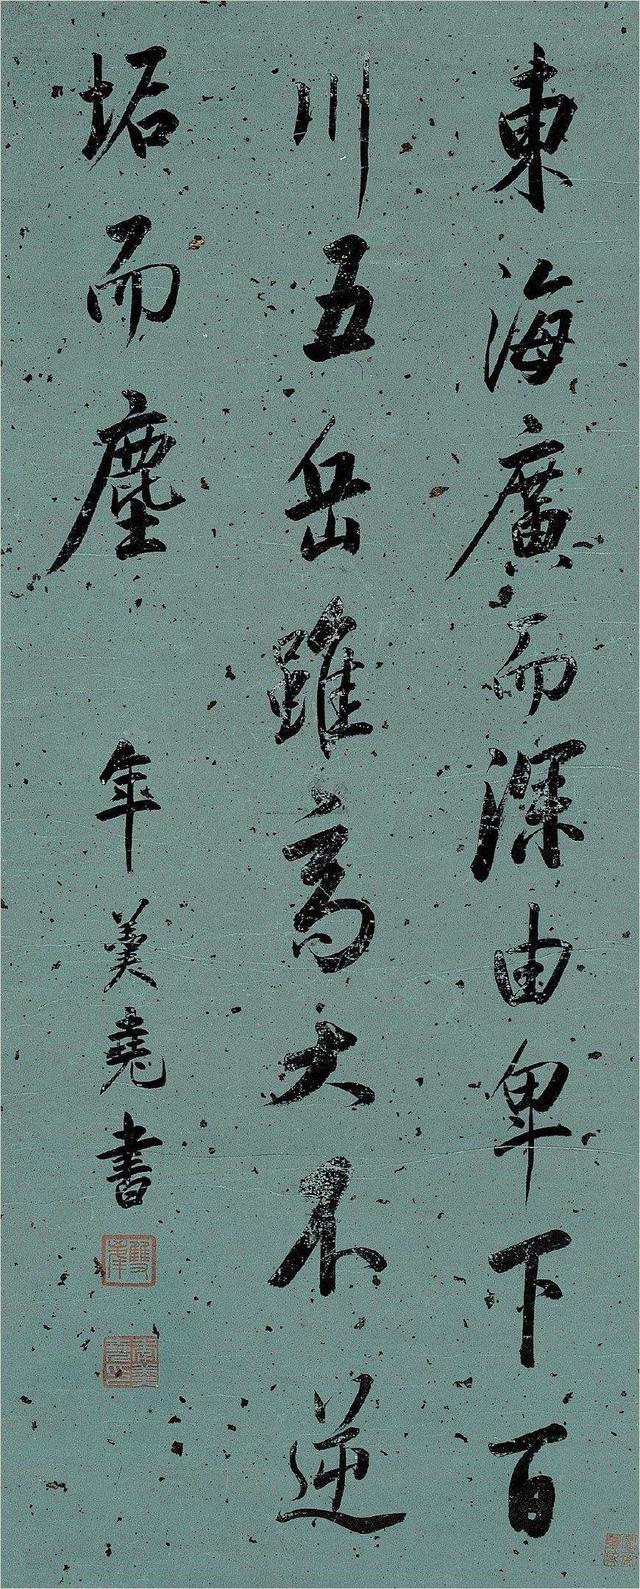 東海廣而深由卑下百
川五岳雖高大不逆
垢而塵
年羹堯書
雙峯